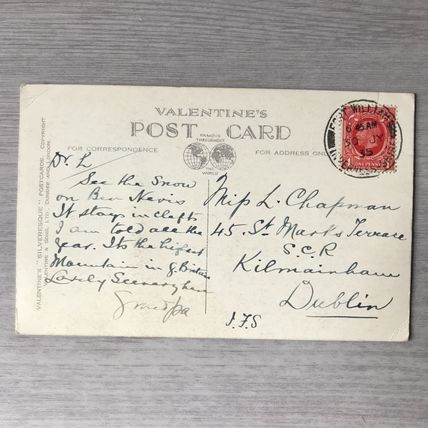 VALENTINE'S
POST CARD
FAMOUS
THROUGHOUT
THE
WORLD
FOR CORRESPONDENCE
FOR ADDRESS ONLY
FORT WILLIAM
6 45 AM
JY
35
ONE PENNY
Dr. L
See the Snow
on Ben Nevis
It stays in clefts
I am told all the
year. Its the highest
Mountain in G. Britain
Lovely Scenery here
Grandpa
Miss L. Chapman
45. St Mark's Terrace
S.C.R
Kilmainham
Dublin
I.F.S
VALENTINE'S "SILVERESQUE" POSTCARDS. COPYRIGHT.
VALENTINE & SONS, LTD. DUNDEE AND LONDON.